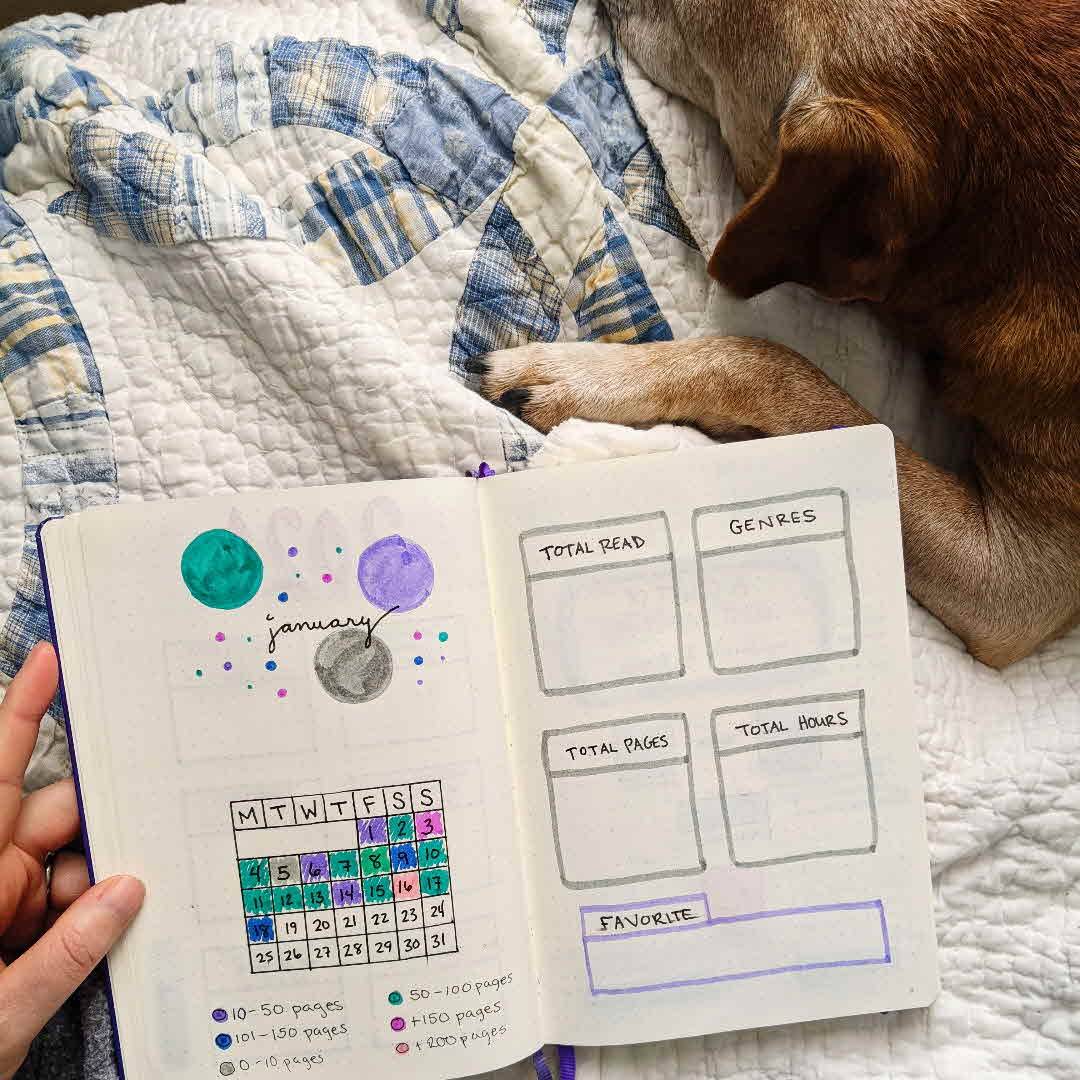 january
M T W T F S S
1 2 3
4 5 6 7 8 9 10
11 12 13 14 15 16 17
18 19 20 21 22 23 24
25 26 27 28 29 30 31
10-50 pages
101-150 pages
0-10 pages
50-100 pages
+150 pages
+200 pages
TOTAL READ
GENRES
TOTAL PAGES
TOTAL HOURS
FAVORITE